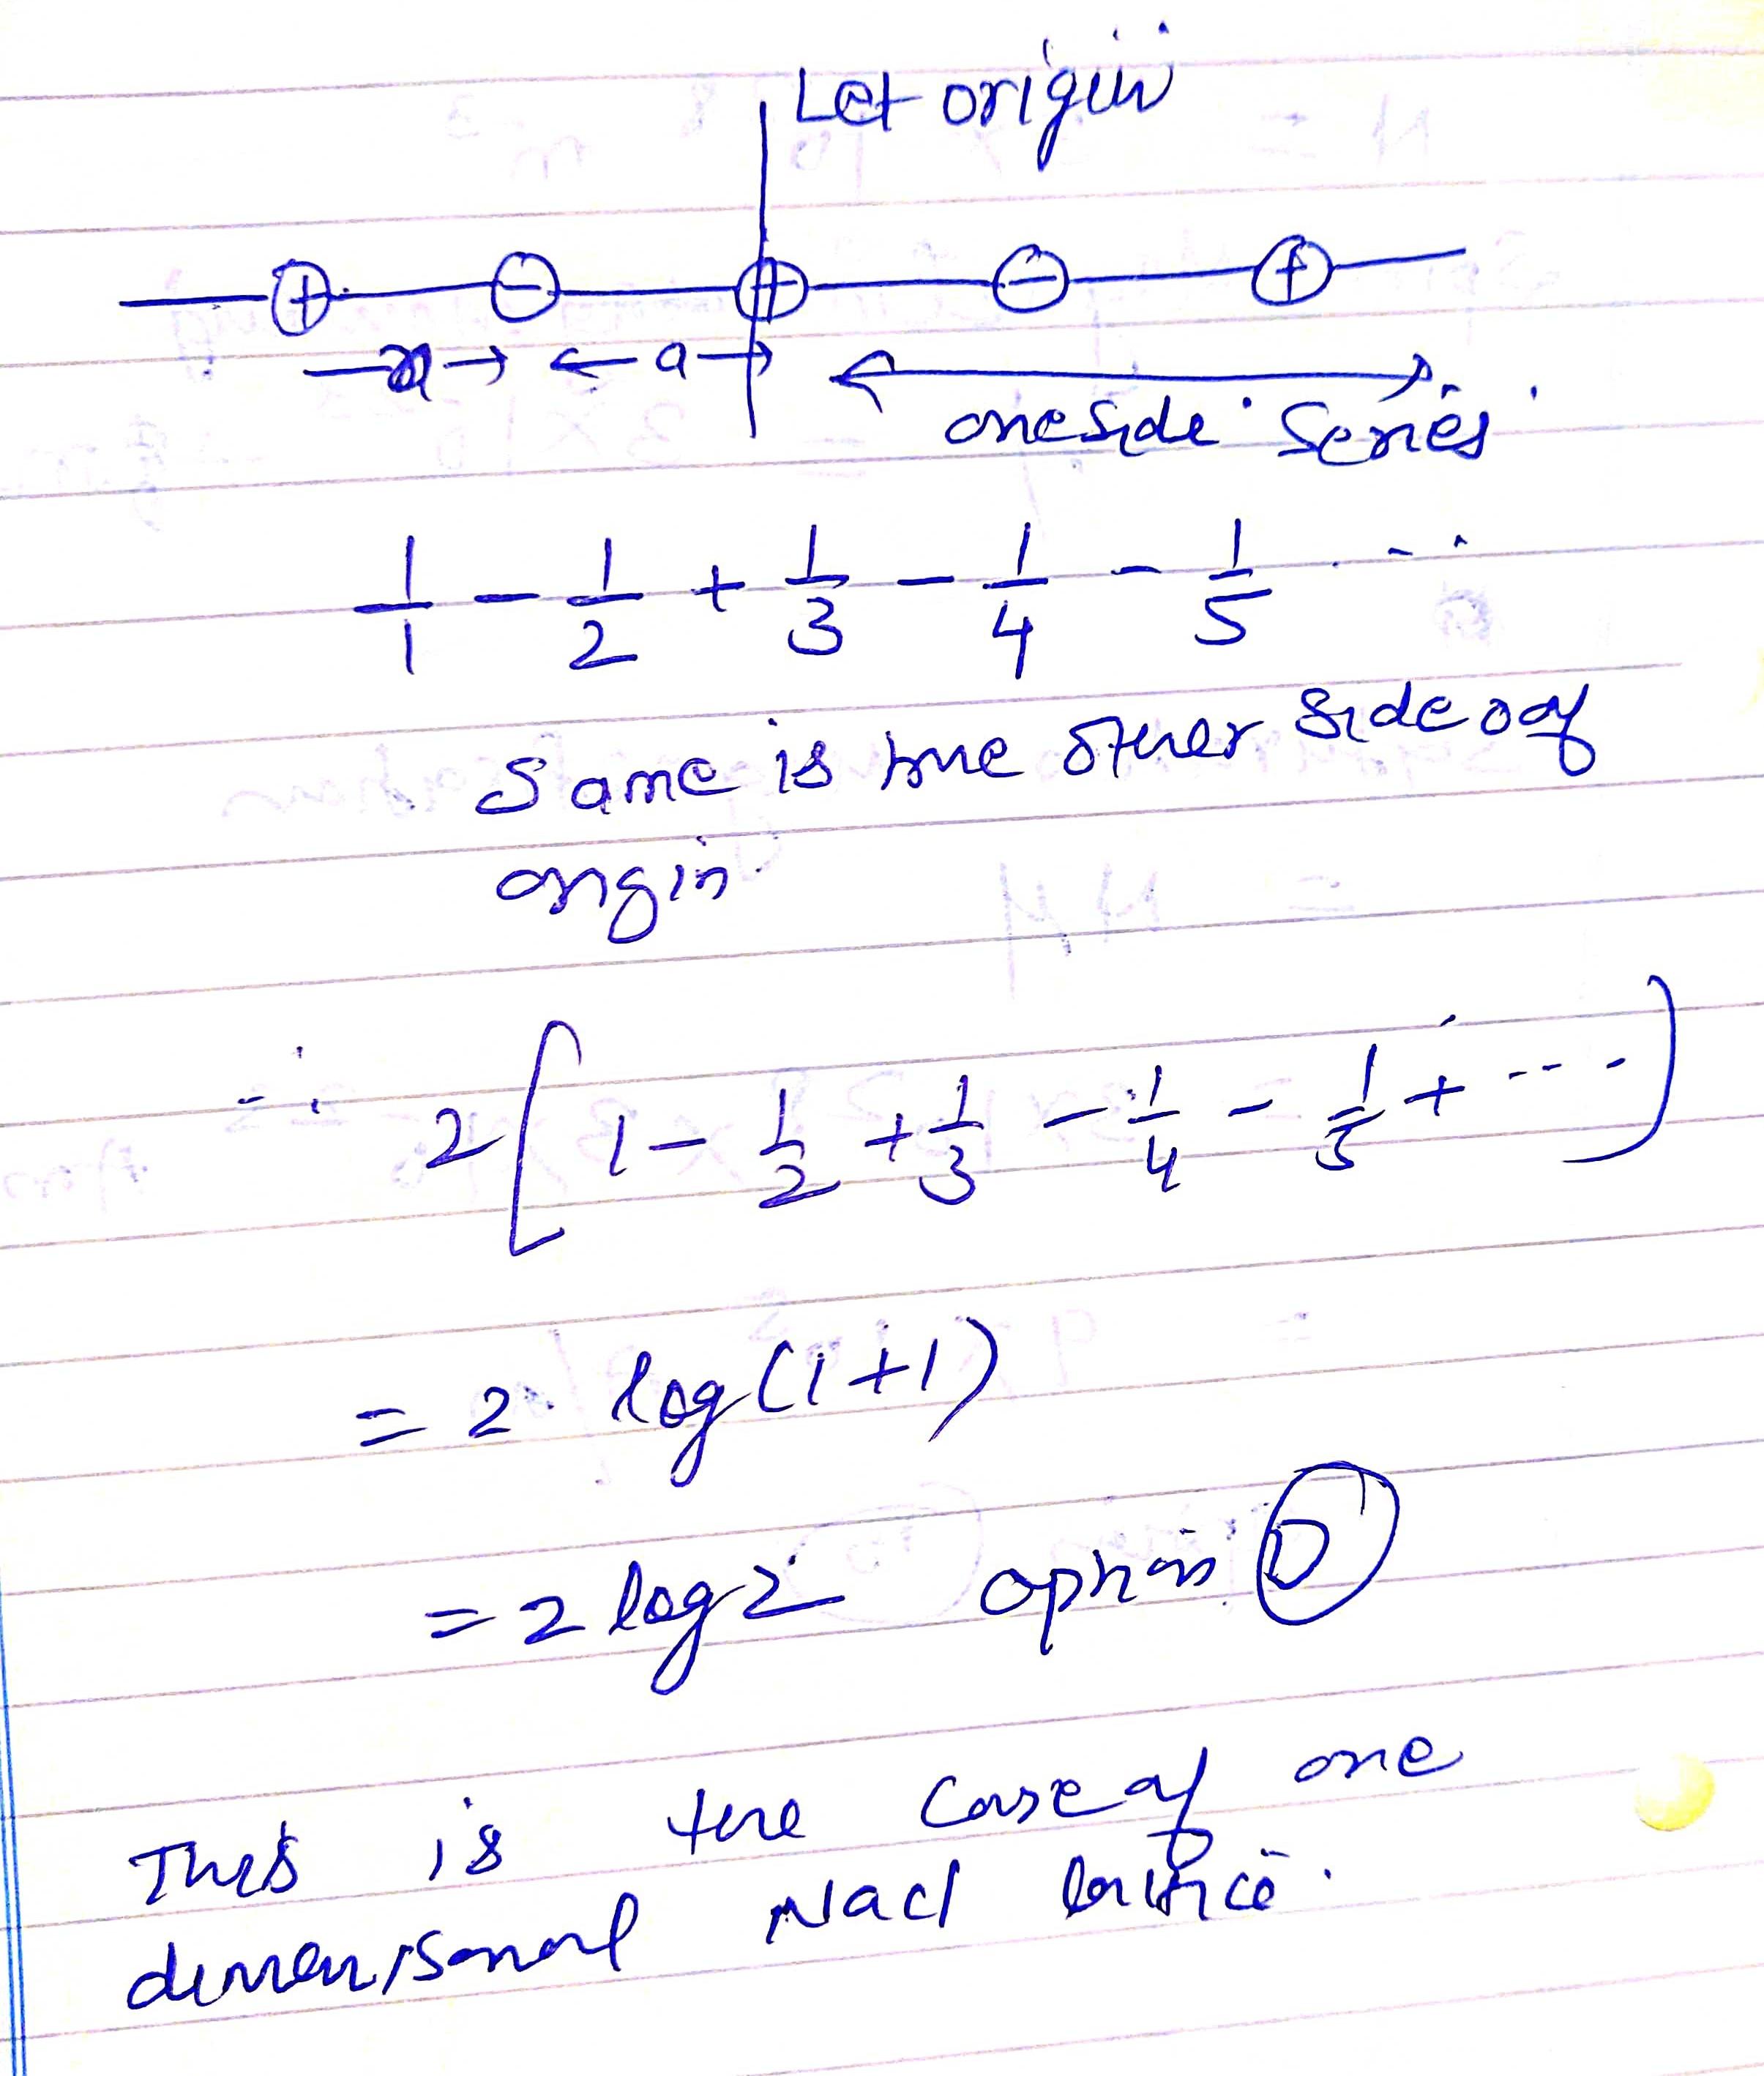 Let origin
+ − + − +
a → ← a →
one side series
1/1 − 1/2 + 1/3 − 1/4 − 1/5 ...
Same is true other side of
origin
∴ 2[1 − 1/2 + 1/3 − 1/4 − 1/5 + ....)
= 2 log(1+1)
= 2 log 2 option D
This is the case of one
dimensional Nacl lattice.